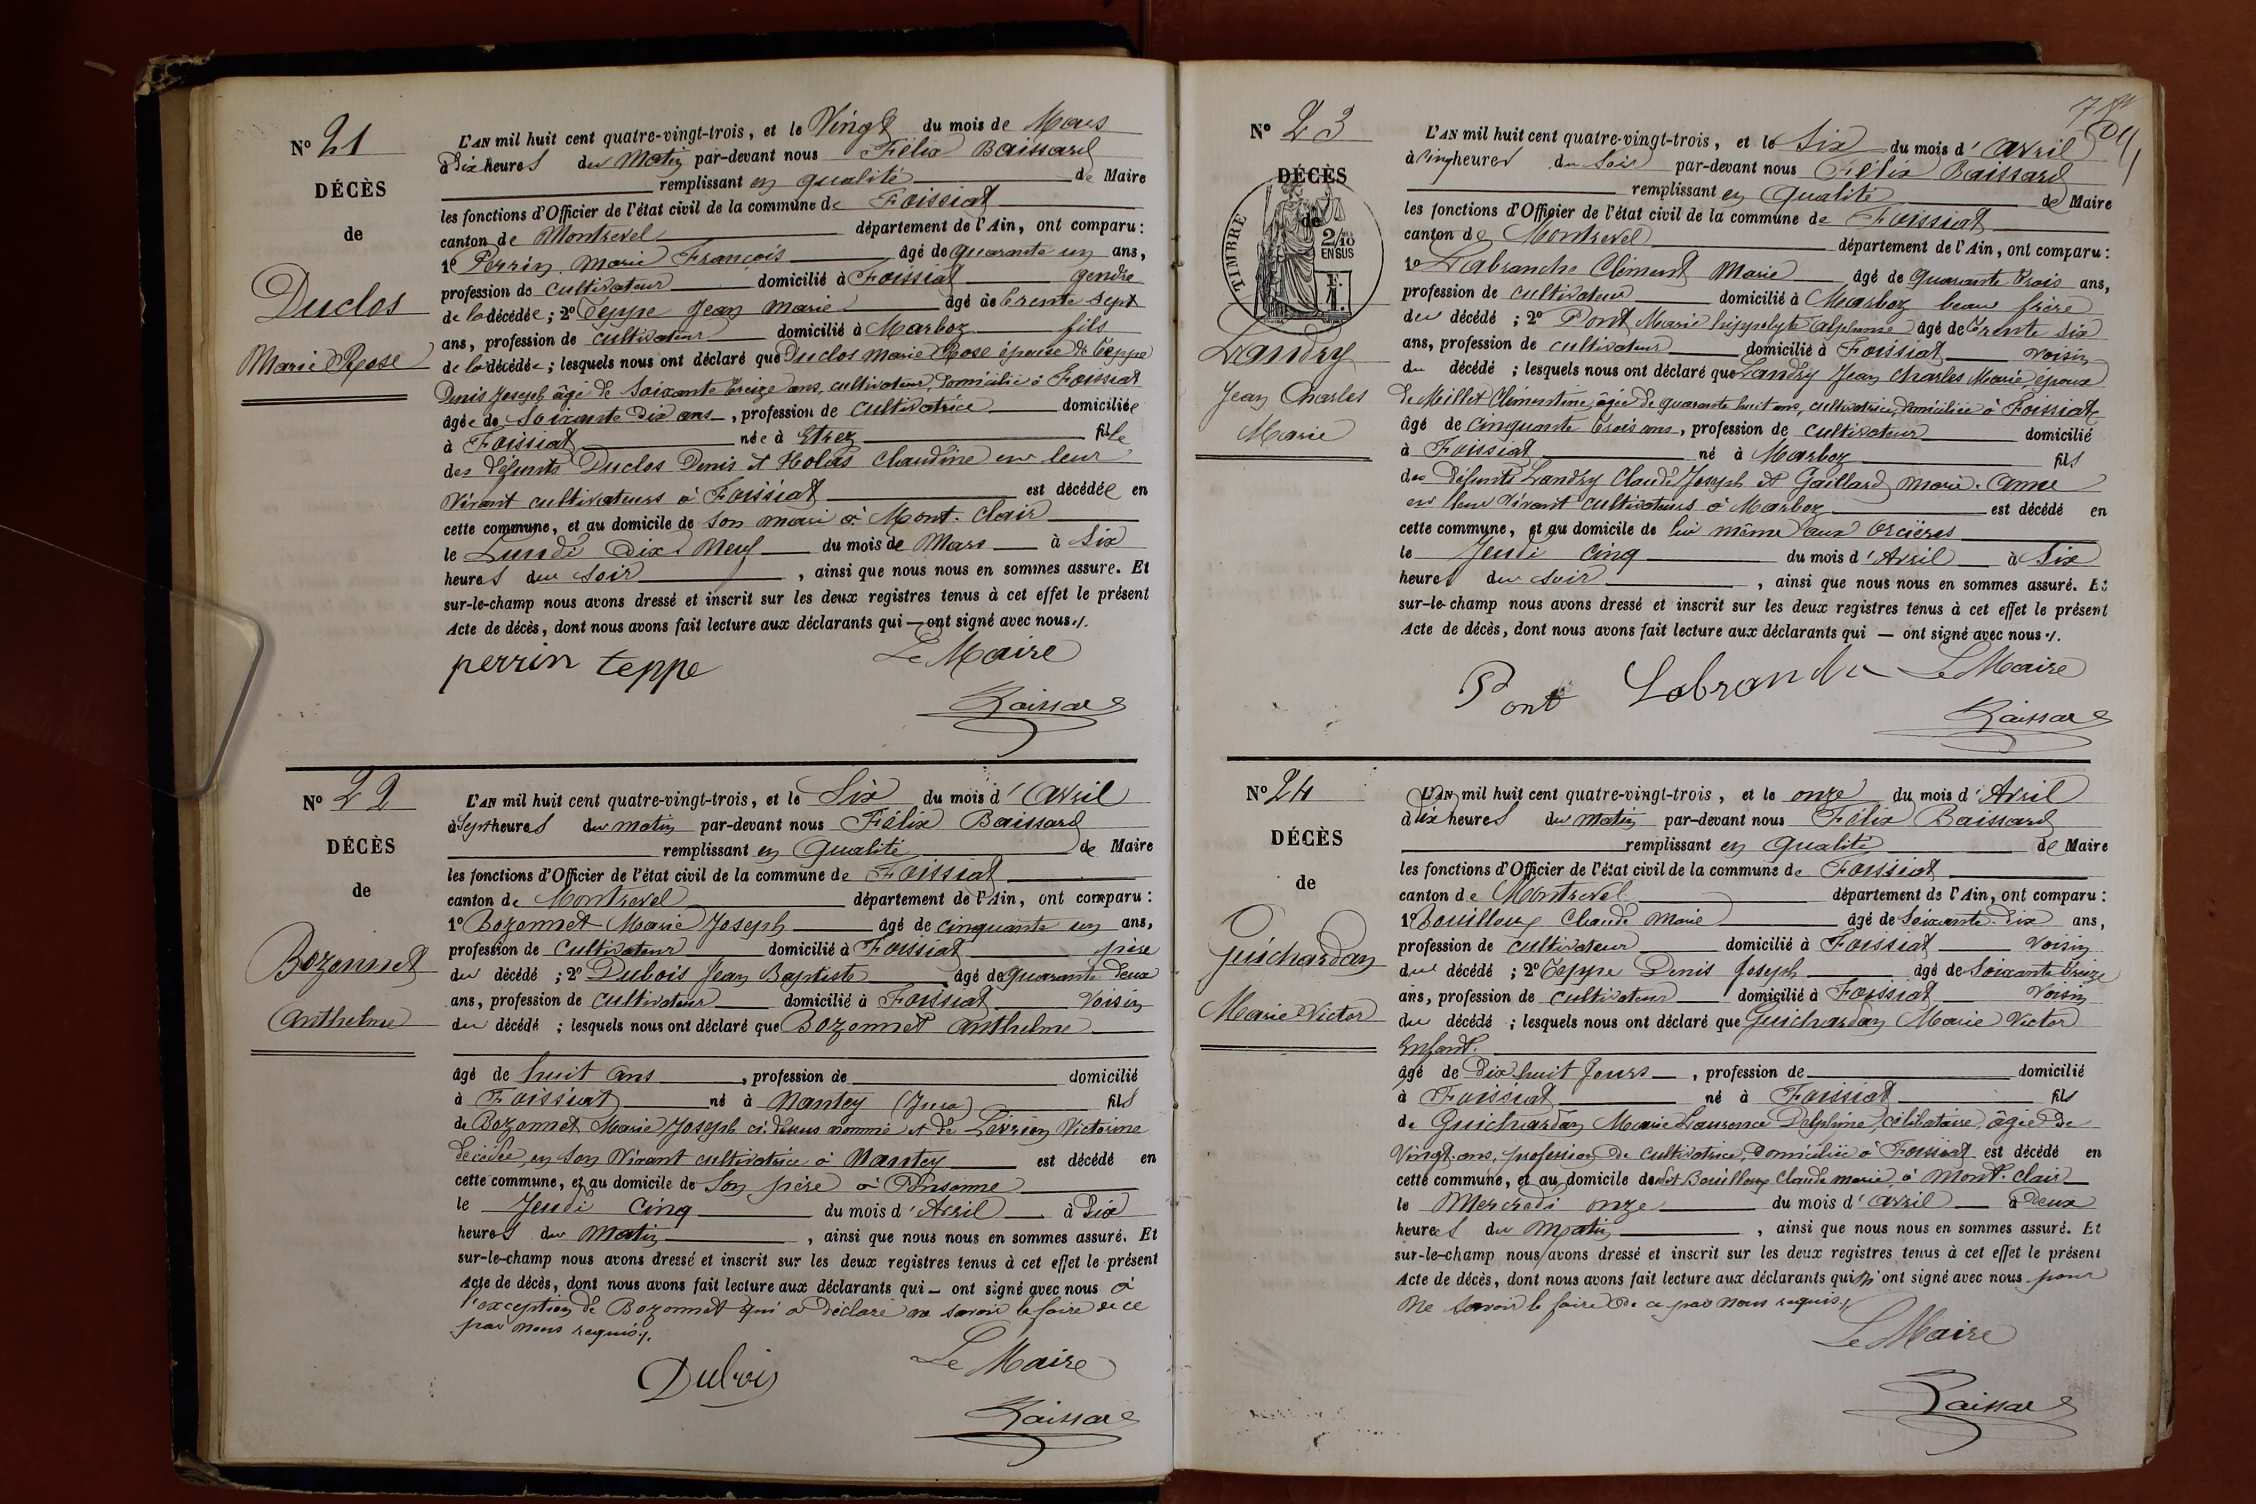 N° 21
DÉCÈS
de
Duclos
Marie Rose
L'AN mil huit cent quatre-vingt-trois, et le Vingt du mois de Mars
à Dix heures du Matin par-devant nous Félix Baissard
remplissant en qualité de Maire
les fonctions d'Officier de l'état civil de la commune de Foissiat
canton de Montrevel département de l'Ain, ont comparu:
1° Perrin Marie François âgé de quarante un ans,
profession de cultivateur domicilié à Foissiat gendre
de la décédée; 2° Teppe Jean Marie âgé de trente sept
ans, profession de cultivateur domicilié à Marboz fils
de la décédée; lesquels nous ont déclaré que Duclos Marie Rose épouse de Teppe
Denis Joseph âgé de Soixante treize ans, cultivateur, domicilié à Foissiat
âgée de Soixante Dix ans, profession de cultivatrice domiciliée
à Foissiat née à Etrez fille
des défunts Duclos Denis et Holas Claudine en leur
Vivant cultivateurs à Foissiat est décédée en
cette commune, et au domicile de son mari à Mont-Clair
le Lundi Dix Neuf du mois de Mars à Six
heures du Soir, ainsi que nous nous en sommes assuré. Et
sur-le-champ nous avons dressé et inscrit sur les deux registres tenus à cet effet le présent
Acte de décès, dont nous avons fait lecture aux déclarants qui — ont signé avec nous./.
perrin teppe Le Maire
Baissard
N° 22
DÉCÈS
de
Bozonnet
Anthelme
L'AN mil huit cent quatre-vingt-trois, et le Six du mois d'Avril
à Sept heures du matin par-devant nous Félix Baissard
remplissant en Qualité de Maire
les fonctions d'Officier de l'état civil de la commune de Foissiat
canton de Montrevel département de l'Ain, ont comparu:
1° Bozonnet Marie Joseph âgé de cinquante un ans,
profession de cultivateur domicilié à Foissiat père
du décédé; 2° Dubois Jean Baptiste âgé de quarante deux
ans, profession de cultivateur domicilié à Foissiat Voisin
du décédé; lesquels nous ont déclaré que Bozonnet Anthelme
âgé de huit ans, profession de domicilié
à Foissiat né à Nantey (Jura) fils
de Bozonnet Marie Joseph ci-dessus nommé et de Levrien Victorine
décédée, en son Vivant cultivatrice à Nantey est décédé en
cette commune, et au domicile de Son père à
le Jeudi Cinq du mois d'Avril à Dix
heures du Matin, ainsi que nous nous en sommes assuré. Et
sur-le-champ nous avons dressé et inscrit sur les deux registres tenus à cet effet le présent
Acte de décès, dont nous avons fait lecture aux déclarants qui — ont signé avec nous à
l'exception de Bozonnet qui a déclaré ne savoir le faire de ce
par nous requis./.
Dubois Le Maire
Baissard
N° 23
DÉCÈS
de
TIMBRE
2/10
EN SUS
Landry
Jean Charles
Marie
L'AN mil huit cent quatre-vingt-trois, et le Six du mois d'Avril
à Cinq heures du Soir par-devant nous Félix Baissard
remplissant en Qualité de Maire
les fonctions d'Officier de l'état civil de la commune de Foissiat
canton de Montrevel département de l'Ain, ont comparu:
1° Labranche Clément Marie âgé de quarante trois ans,
profession de cultivateur domicilié à Marboz beau frère
du décédé; 2° Pont Marie hippolyte Alphonse âgé de trente six
ans, profession de cultivateur domicilié à Foissiat Voisin
du décédé; lesquels nous ont déclaré que Landry Jean Charles Marie, époux
de Millet Clémentine, âgée de quarante huit ans, cultivatrice, domiciliée à Foissiat
âgé de cinquante trois ans, profession de cultivateur domicilié
à Foissiat né à Marboz fils
des Défunts Landry Claude Joseph et Gaillard Marie-Anne
en leur Vivant cultivateurs à Marboz est décédé en
cette commune, et au domicile de lui même aux Orcières
le Jeudi Cinq du mois d'Avril à Six
heures du Soir, ainsi que nous nous en sommes assuré. Et
sur-le-champ nous avons dressé et inscrit sur les deux registres tenus à cet effet le présent
Acte de décès, dont nous avons fait lecture aux déclarants qui — ont signé avec nous./.
Pont Labranche Le Maire
Baissard
N° 24
DÉCÈS
de
Guichardan
Marie Victor
L'AN mil huit cent quatre-vingt-trois, et le onze du mois d'Avril
à Dix heures du Matin par-devant nous Félix Baissard
remplissant en Qualité de Maire
les fonctions d'Officier de l'état civil de la commune de Foissiat
canton de Montrevel département de l'Ain, ont comparu:
1° Bouilloux Claude Marie âgé de Soixante-dix ans,
profession de cultivateur domicilié à Foissiat Voisin
du décédé; 2° Teppe Denis Joseph âgé de Soixante treize
ans, profession de cultivateur domicilié à Foissiat Voisin
du décédé; lesquels nous ont déclaré que Guichardan Marie Victor
Enfant.
âgé de Dix huit Jours, profession de domicilié
à Foissiat né à Foissiat fils
de Guichardan Marie Laurence Delphine, célibataire, âgée de
Vingt-ans, profession de cultivatrice, domiciliée à Foissiat est décédé en
cette commune, et au domicile de dit Bouilloux Claude Marie, à Mont-Clair
le Mercredi onze du mois d'Avril à Deux
heures du Matin, ainsi que nous nous en sommes assuré. Et
sur-le-champ nous avons dressé et inscrit sur les deux registres tenus à cet effet le présent
Acte de décès, dont nous avons fait lecture aux déclarants qui n'ont signé avec nous pour
ne savoir le faire de ce par nous requis./.
Le Maire
Baissard